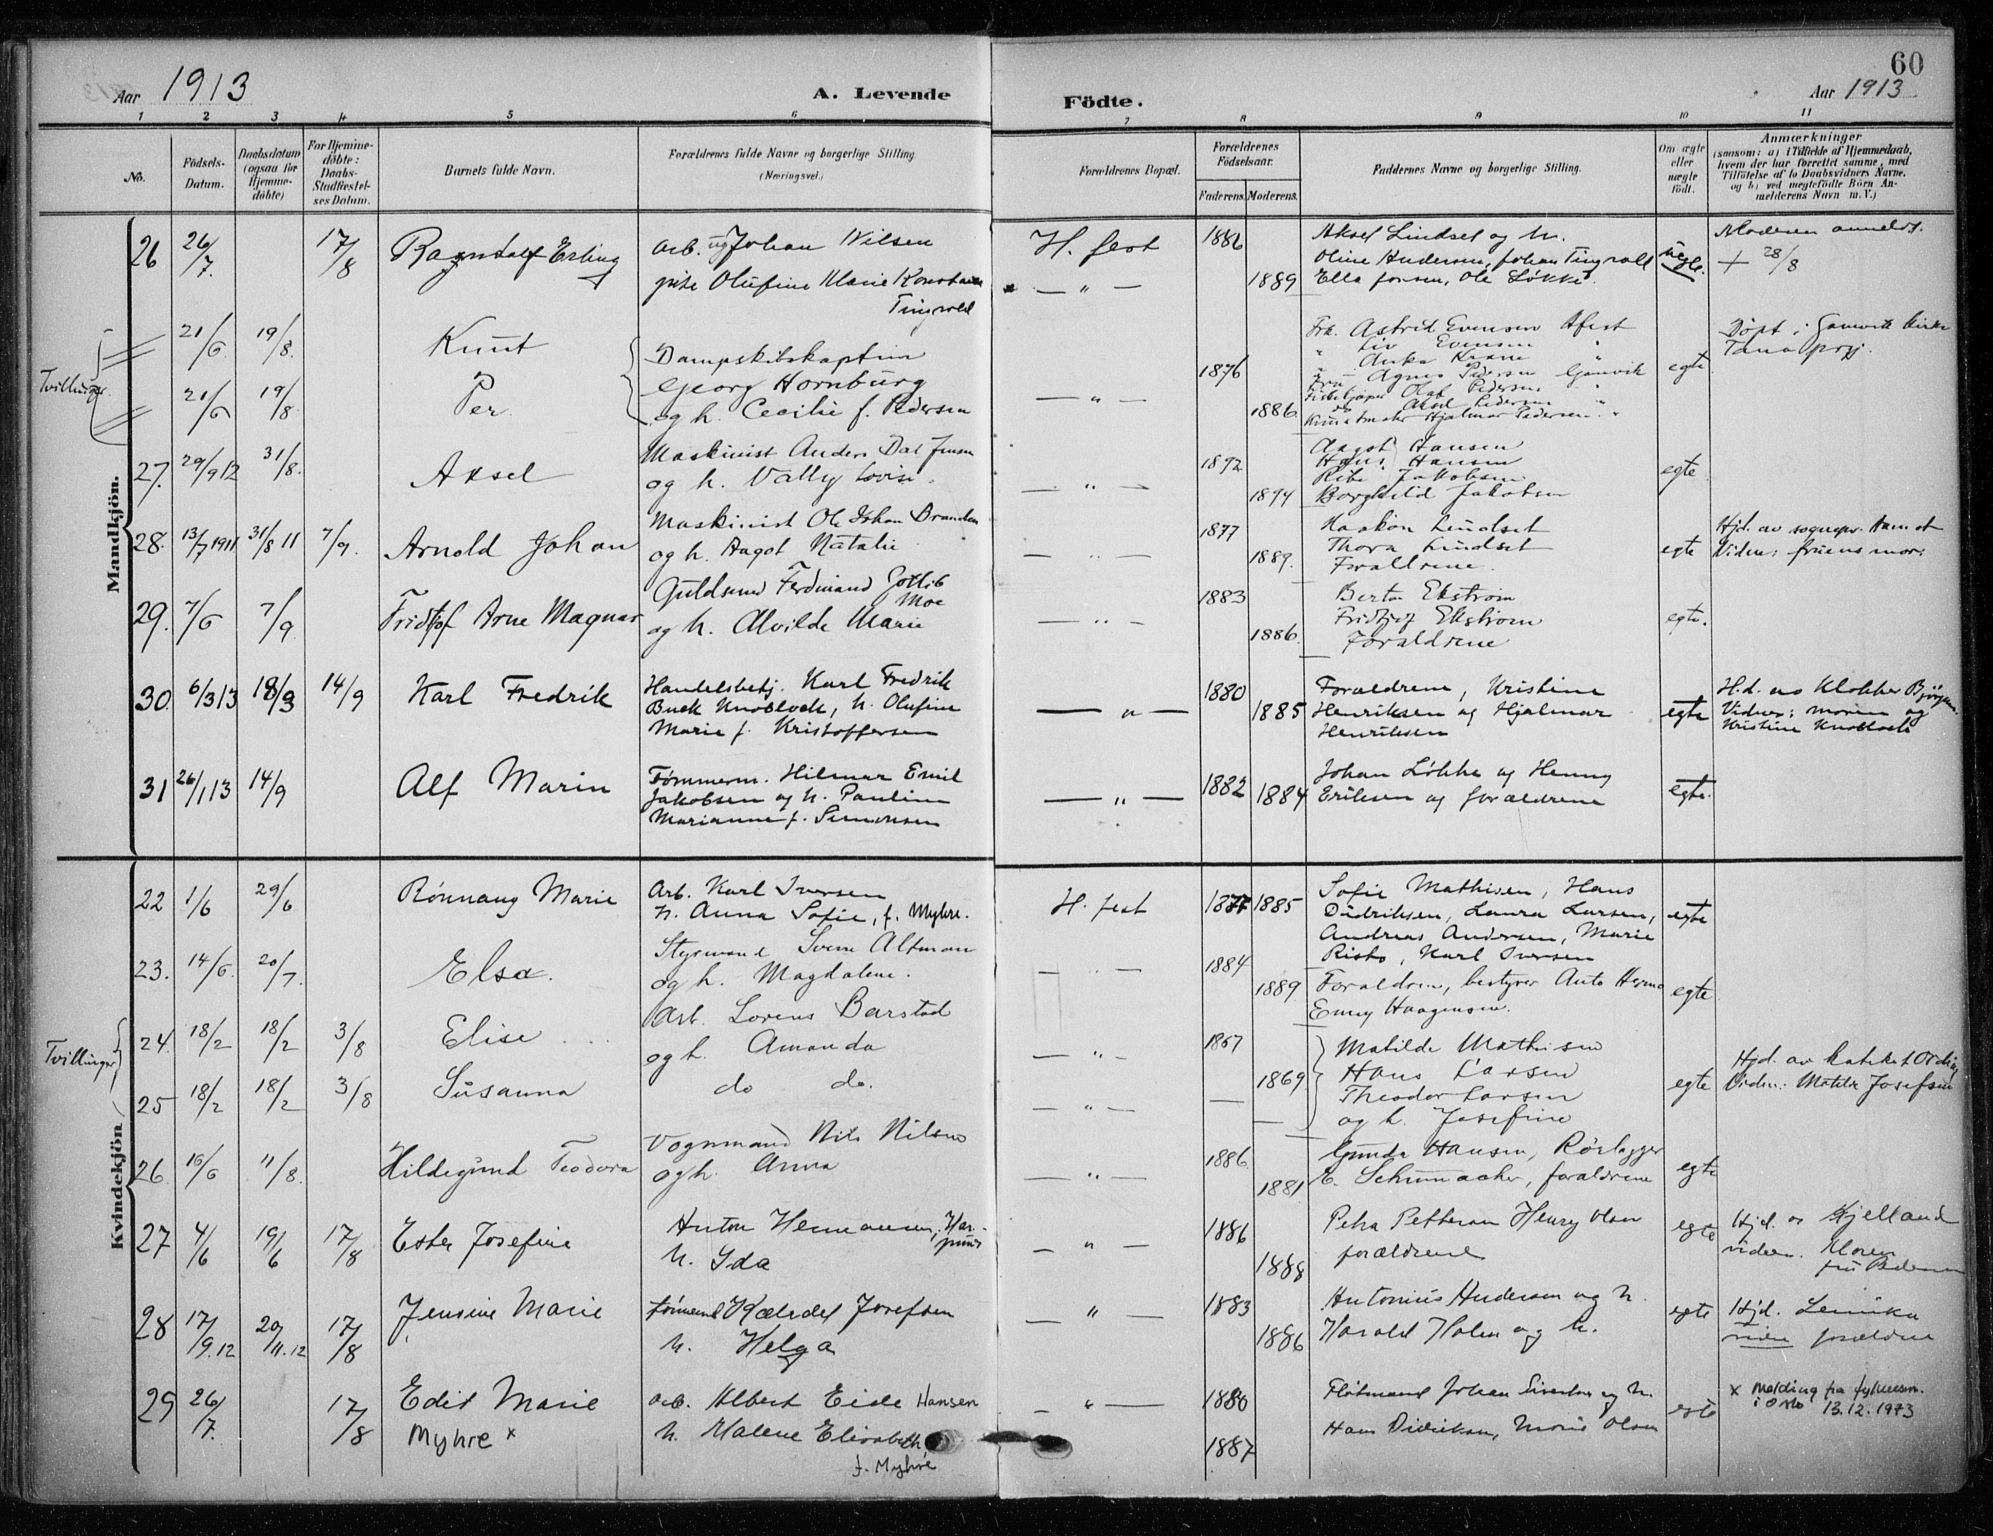 60
Aar 1913
A. Levende
Födte.
Aar 1913
1 2 3 4 5 6 7 8 9 10 11
No.
Födsels-
Datum.
Daabsdatum
(ogsaa for
Hjemme-
döbte)
For Hjemme-
döbte:
Daabs-
Stadfæstel-
ses Datum.
Barnets fulde Navn.
Forældrenes fulde Navne og borgerlige Stilling
(Næringsvei.)
Forældrenes Bopæl.
Forældrenes
Födselsaar.
Faderens. Moderens.
Faddernes Navne og borgerlige Stilling.
Om ægte
eller
uægte
født.
Anmærkninger
(saasom: a) i Tilfælde af Hjemmedaab,
hvem der har forrettet samme, med
Tilføielse af to Daabsvidners Navne.
og b) ved uægtefødte Börn An-
melderens Navn m. V.)
Mandkjön.
26 26/7. 17/8 Erling
arb. ug Johan Nilsen
pike Olufine Marie
Tingvold
H. fest
— " —
1886
1889
Aksel Lindset og h.
Oline Andersen, Johan Tingvold
Ella Jonsen, Ole Løkke
uegte.
Moderen anmeldt.
+ 28/8
Tvillinger
21/6 19/8. Knut
21/6 19/8 Per
Dampskibskaptein
Georg Hornburg
og h. Cecilie f. Pedersen
— " —
1876
1886
Frk. Astrid Evensen Hfest
" Liv Evensen "
" Anka Krane "
Fru Agnes Pedersen Gamvik
Olaf Pedersen "
Aksel Pedersen "
Hjalmar Pedersen "
egte
Døpt i Gamvik kirke
Tana prgj.
27. 29/9 12 31/8. Aksel
Maskinist Anders Dal Jensen
og h. Vally Lovise.
— " —
1892
1894
Aagot Hansen
Hans Hansen
Jakobsen
Borghild Jakobsen
egte
28. 13/7 1911 31/8 11 7/9. Arnold Johan
Maskinist Ole Johan
og h. Aagot Natalie
— " —
1877
1889.
Haakon Lindset
Thora Lindset
Forældrene.
egte
Hjd. av sognepr.
Vidne: fruens mor.
29. 7/6 7/9 Fridtjof Arne Magnar
Guldsmed Ferdinand Gotlib
Moe
og h. Alvilde Marie
— " —
1883
1886.
Berta Ekstrøm
Fridtjof Ekstrøm
Forældrene
egte.
30 6/3 13 18/3 14/9 Karl Fredrik
Handelsbetj. Karl Fredrik
Buck Knoblock, h. Olufine
Marie f. Kristoffersen
— " —
1880
1885
Forældrene, Kristine
Henriksen og Hjalmar
Henriksen
egte
H.d. av Klokker
Vidner: moren og
Kristine Knoblock
31 26/1 13 14/9 Alf Marin
Tømmerm. Hilmar Emil
Jakobsen og h. Pauline
Marianne f. Simonsen
— " —
1882
1884
Johan Løkke og Henny
Eriksen og forældrene
egte.
Kvindekjön
22 1/6 29/6 Rönnaug Marie
Arb. Karl Iversen
h. Anna Sofie, f. Myhre.
H. fest
1877 1885
Sofie Mathisen, Hans
Didriksen, Laura Larsen,
Andreas Andersen, Marie
Risto, Karl Iversen
egte
23. 14/6. 20/7. Elsa.
Altman
og h. Magdalene.
— " —
1884
1889
Forældrene, bestyrer
Haagensen.
egte
Tvillinger
24. 18/2 18/2 3/8 Elise
Arb. Lorens Barstad
og h. Amanda
— " —
1867
1869
Matilde Mathisen
Hans Larsen
25 18/2 18/2 3/8 Susanna
do do.
— " —
Theodor Larsen
og h. Josefine
egte
Hjd. av
Vidne: Matilde Josefsen
26. 16/6 11/8. Hildegund Teodora
Vognmand Nils Nilsen
og h. Anna
— " —
1886
1881
Gunda Hansen, Rörlægger
E. Schumacher, forældrene
egte
27 4/6 19/6 17/8 Ester Josefine
Anton Hermansen,
h. Ida
— " —
1886
1888
Petra Pettersen Henry Olsen
forældrene
egte
Hjd. av Kjelland
vidner. Moren
28 17/9.12 20/11.12 17/8 Jensine Marie
Josefsen
h. Helga
— " —
1883
1886
Antonius Andersen og h.
Harald Holm og h.
egte
Hjd.
29 26/7. 17/8 Edit Marie
Myhre x
arb. Albert Eide Hansen
h. Malene Elisabeth
f. Myhre
— " —
1880
1887
Johan Sivertsen og h.
Hans Didriksen, Olsen
egte
x Melding fra fylkesm.
i Oslo 13.12.1973